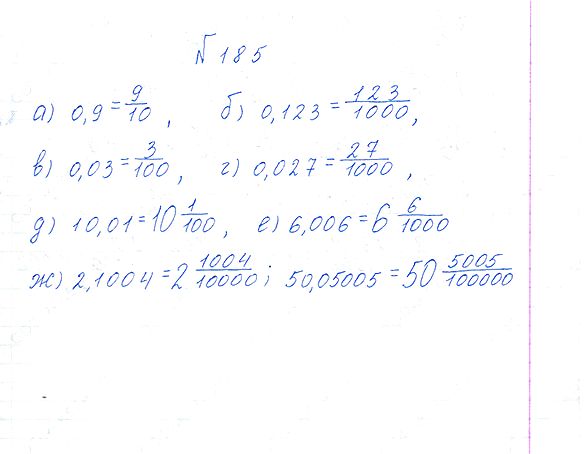 № 185
а) 0,9 = 9/10 , б) 0,123 = 123/1000 ,
в) 0,03 = 3/100 , г) 0,027 = 27/1000 ,
д) 10,01 = 10 1/100 , е) 6,006 = 6 6/1000
ж) 2,1004 = 2 1004/10000 ; 50,05005 = 50 5005/100000